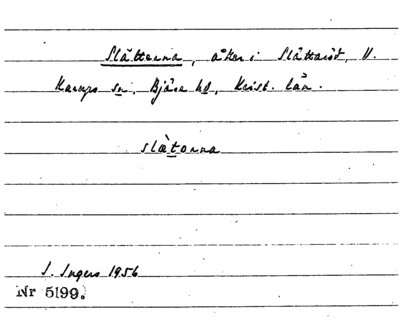 Slåttorna, åker i Slåttaröd, V.
Karups sn, Bjäre hd, Krist. län.
slàtorna
I. Ingers 1956
Nr 5199.